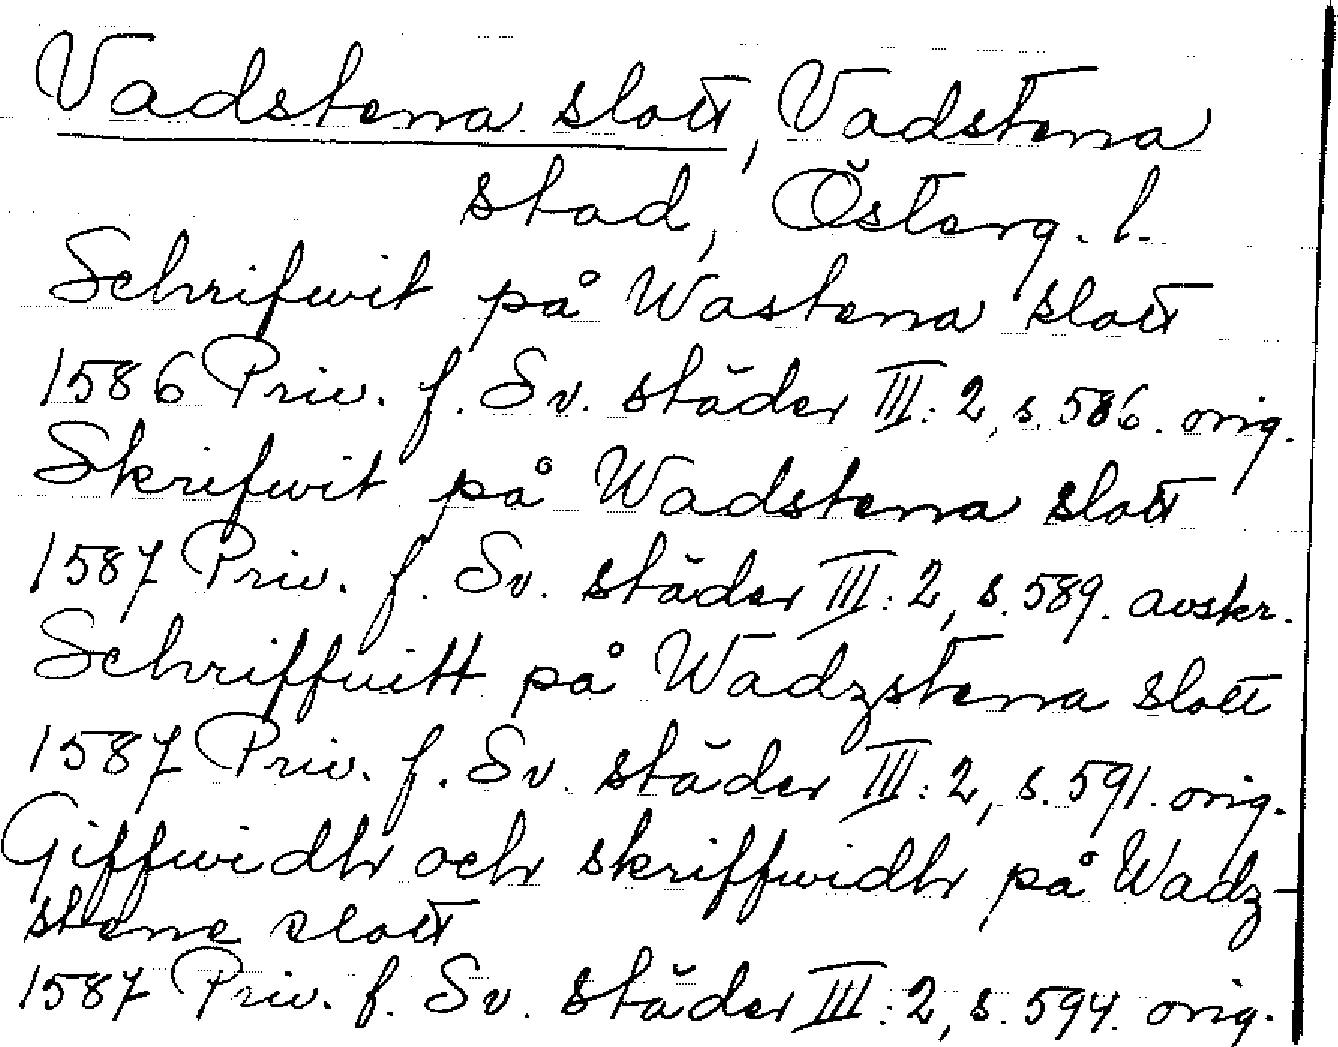 Vadstena slott, Vadstena
stad, Österg. l.
Schrifwit på Wastena slott
1586 Priv. f. Sv. städer III: 2, s. 586. orig.
Skrifwit på Wadstena slott
1587 Priv. f. Sv. städer III: 2, s. 589. avskr.
Schriffuitt på Wadzstena slott
1587 Priv. f. Sv. städer III: 2, s. 591. orig.
Giffwidh och skriffwidh på Wadz-
stene slott
1587 Priv. f. Sv. städer III: 2, s. 594. orig.